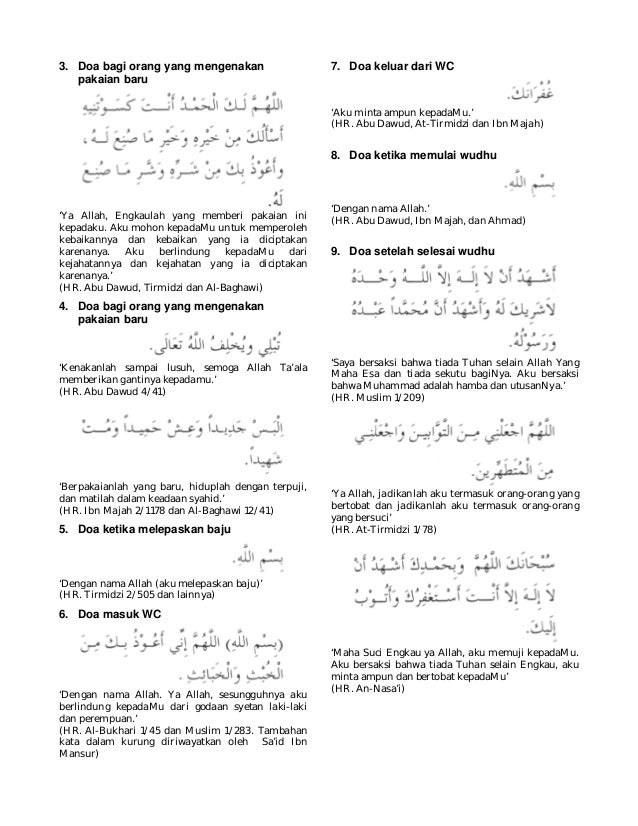 3. Doa bagi orang yang mengenakan
pakaian baru
اللَّهُمَّ لَكَ الْحَمْدُ أَنْتَ كَسَوْتَنِيهِ
أَسْأَلُكَ مِنْ خَيْرِهِ وَخَيْرِ مَا صُنِعَ لَهُ،
وأَعُوْذُ بِكَ مِنْ شَرِّهِ وَشَرِّ مَا صُنِعَ
لَهُ.
‘Ya Allah, Engkaulah yang memberi pakaian ini
kepadaku. Aku mohon kepadaMu untuk memperoleh
kebaikannya dan kebaikan yang ia diciptakan
karenanya. Aku berlindung kepadaMu dari
kejahatannya dan kejahatan yang ia diciptakan
karenanya.’
(HR. Abu Dawud, Tirmidzi dan Al-Baghawi)
4. Doa bagi orang yang mengenakan
pakaian baru
تُبْلِي ويُخْلِفُ اللَّهُ تَعَالَى.
‘Kenakanlah sampai lusuh, semoga Allah Ta’ala
memberikan gantinya kepadamu.’
(HR. Abu Dawud 4/41)
اِلْبَسْ جَدِيداً وَعِشْ حَمِيداً وَمُتْ
شَهِيداً.
‘Berpakaianlah yang baru, hiduplah dengan terpuji,
dan matilah dalam keadaan syahid.’
(HR. Ibn Majah 2/1178 dan Al-Baghawi 12/41)
5. Doa ketika melepaskan baju
بِسْمِ اللَّهِ.
‘Dengan nama Allah (aku melepaskan baju)’
(HR. Tirmidzi 2/505 dan lainnya)
6. Doa masuk WC
(بِسْمِ اللَّهِ) اللَّهُمَّ إِنِّي أَعُوْذُ بِكَ مِنَ
الْخُبْثِ وَالْخَبَائِثِ.
‘Dengan nama Allah. Ya Allah, sesungguhnya aku
berlindung kepadaMu dari godaan syetan laki-laki
dan perempuan.’
(HR. Al-Bukhari 1/45 dan Muslim 1/283. Tambahan
kata dalam kurung diriwayatkan oleh Sa’id Ibn
Mansur)
7. Doa keluar dari WC
غُفْرَانَكَ.
‘Aku minta ampun kepadaMu.’
(HR. Abu Dawud, At-Tirmidzi dan Ibn Majah)
8. Doa ketika memulai wudhu
بِسْمِ اللَّهِ.
‘Dengan nama Allah.’
(HR. Abu Dawud, Ibn Majah, dan Ahmad)
9. Doa setelah selesai wudhu
أَشْهَدُ أَنْ لاَ إِلَهَ إِلاَّ اللَّهُ وَحْدَهُ
لاَشَرِيكَ لَهُ وَأَشْهَدُ أَنَّ مُحَمَّداً عَبْدُهُ
وَرَسُوْلُهُ.
‘Saya bersaksi bahwa tiada Tuhan selain Allah Yang
Maha Esa dan tiada sekutu bagiNya. Aku bersaksi
bahwa Muhammad adalah hamba dan utusanNya.’
(HR. Muslim 1/209)
اللَّهُمَّ اجْعَلْنِي مِنَ التَّوَّابِينَ وَاجْعَلْنِي
مِنَ الْمُتَطَهِّرِينَ.
‘Ya Allah, jadikanlah aku termasuk orang-orang yang
bertobat dan jadikanlah aku termasuk orang-orang
yang bersuci’
(HR. At-Tirmidzi 1/78)
سُبْحَانَكَ اللَّهُمَّ وَبِحَمْدِكَ أَشْهَدُ أَنْ
لاَ إِلَهَ إِلاَّ أَنْتَ أَسْتَغْفِرُكَ وَأَتُوْبُ
إِلَيكَ.
‘Maha Suci Engkau ya Allah, aku memuji kepadaMu.
Aku bersaksi bahwa tiada Tuhan selain Engkau, aku
minta ampun dan bertobat kepadaMu’
(HR. An-Nasa’i)